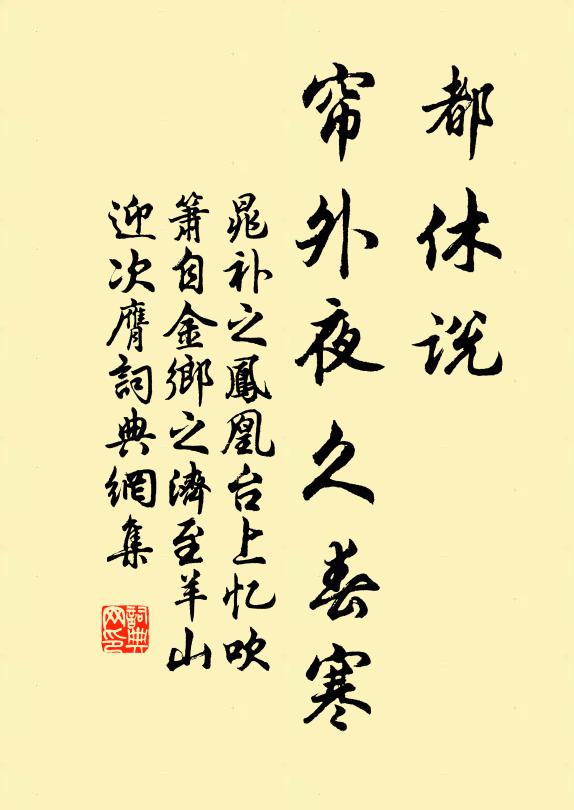 都休说
帘外夜久春寒
晁补之鳳凰台上忆吹
箫自金鄉之濟至羊山
迎次膺詞典網集
詞典网印